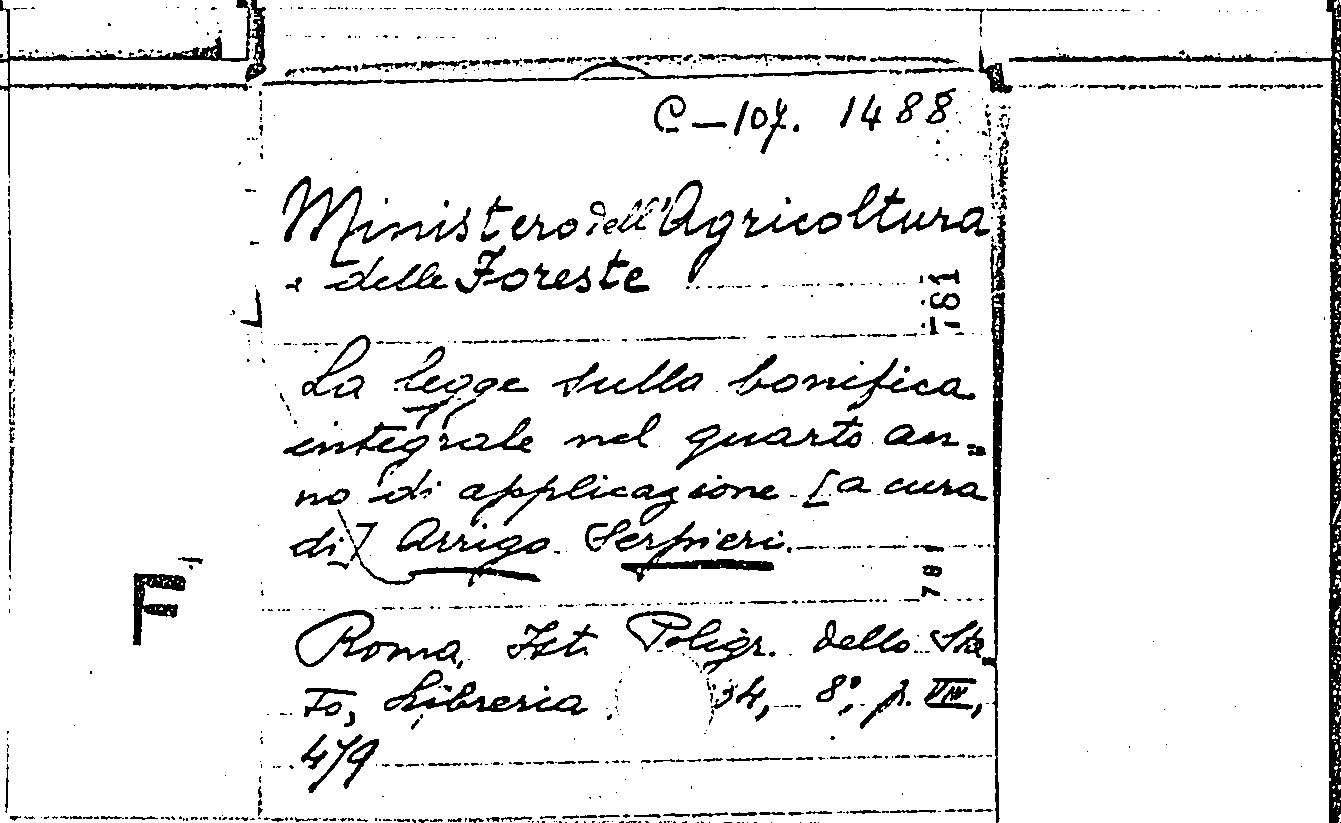 C-107. 1488
Ministero dell'Agricoltura
e delle Foreste
781
La legge sulla bonifica
integrale nel quarto an=
no di applicazione [a cura
di] Arrigo Serpieri.
781
F
Roma, Ist. Poligr. dello Sta_
to, Libreria 34, 8°, p. VIII,
479